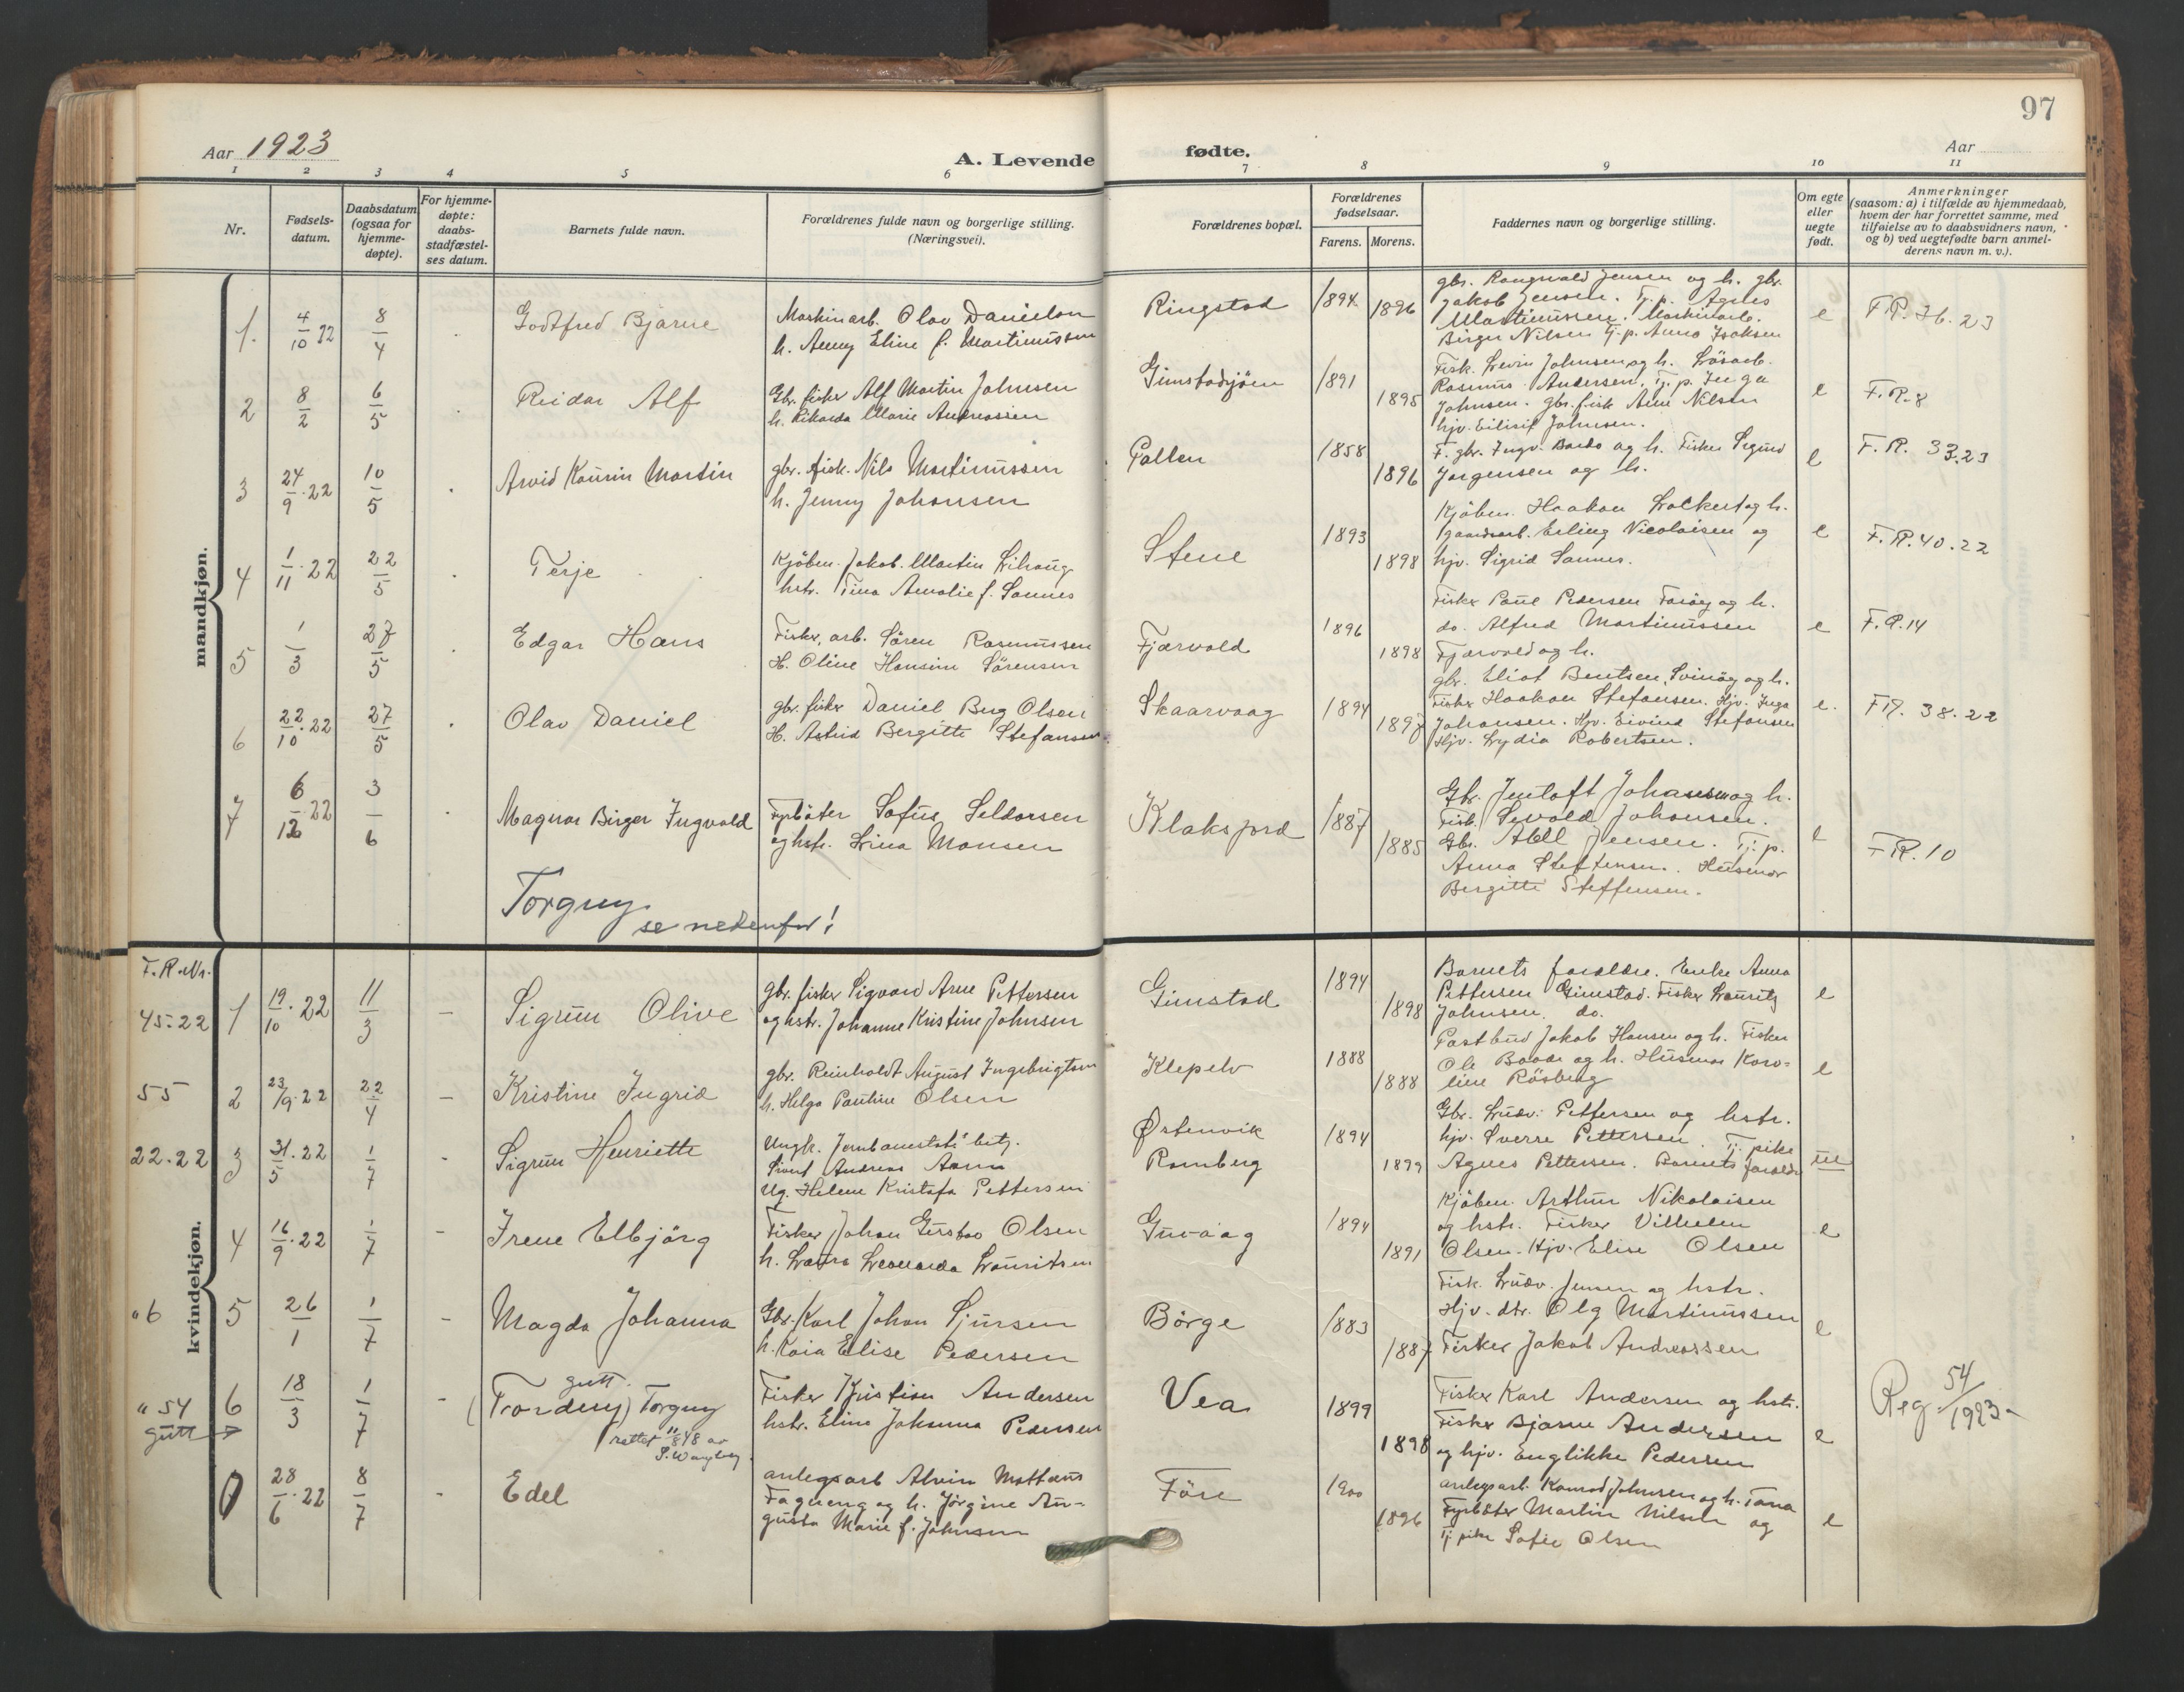 97
Aar 1923
A. Levende
fødte.
Aar
1 2 3 4 5 6 7 8 9 10 11
Nr.
Fødsels-
datum.
Daabsdatum
(ogsaa for
hjemme-
døpte).
For hjemme-
døpte:
daabs-
stadfæstel-
ses datum.
Barnets fulde navn.
Forældrenes fulde navn og borgerlige stilling.
(Næringsvei).
Forældrenes bopæl.
Forældrenes
fødselsaar.
Farens. Morens.
Faddernes navn og borgerlige stilling.
Om egte
eller
uegte
født.
Anmerkninger
(saasom: a) i tilfælde av hjemmedaab,
hvem der har forrettet samme, med
tilføielse av to daabsvidners navn,
og b) ved uegtefødte barn anmel-
derens navn m. v.).
mandkjøn.
1. 4/10 22 8/4 Godtfred Bjarne
Maskinarb. Olav Danielsen
h. Anny Eline f. Martinussen
Ringstad 1894 1896
gbr. Rangvald Jensen og h. gbr.
Jakob Jensen. Tj. p. Agnes
Martinussen. Maskinarb.
Birger Nilsen Tj. p. Anna Isaksen
e F.R. 36.23
2 8/2 6/5 Reidar Alf
Gbr. fisker Alf Martin Johnsen
h. Rikarda Marie Andreassen
Gimstadsjöen 1891 1895
Fisk. Levin Johnsen og h. Lösarb.
Rasmus Andersen, Tj. p. Inga
Johnsen. gbr. fisk Arne Nilsen
hjv. Eilisif Johnsen.
e F.R. 8
3 24/9 22 10/5 Arvid Kaurin Martin
gbr. fisk. Nils Martinussen
h. Jenny Johansen
Pollen 1858 1896
F. gbr. Ingv. Bardo og h. Fisker Sigurd
Jørgensen og h.
e F.R. 33.23
4 1/11 22 22/5 Terje
Kjöbm. Jakob Martin Lihaug
hstr. Tina Amalie f. Sannes
Stene 1893 1898
Kjöbm. Haakon Lockert og h.
gaardsarb. Erling Nicolaisen og
hjv. Sigrid Sannes.
e F.R. 40.22
5 1/3 27/5 Edgar Hans
Fisker, arb. Sören Rasmussen
H. Oline Hansine Sörensen
Fjærvold 1896 1898
Fisker Paul Pedersen Faröy og h.
do. Alfred Martinussen
Fjærvold og h.
e F.R. 14
6 22/10 22 27/5 Olav Daniel
gbr. fisker Daniel Berg Olsen
H. Astrid Bergitte Stefansen
Skaarvaag 1894 1897
gbr. Eliot Bentsen, Svinöy og h.
Fisker Haakon Stefansen. Hjv. Inga
Johansen. Hjv. Eivind Stefansen
Hjv. Lydia Robertsen.
e. F.R. 38.22
7 6/12 22 3/6 Magnar Birger Ingvald
Fyrböter Sofus Seldorsen
og hstr. Lina Monsen
Klaksjord 1887 1885
Gbr. Jentoft Johansen og h.
Fisk. Sevald Johansen.
Gbr. Abel Jensen. Tj. p.
Anna Steffensen. Husmor
Bergitte Steffensen.
e F.R. 10
Torguy
se nedenfor!
kvindekjøn.
F.R. Nr.
45.22 1 19/10 22 11/3 – Sigrun Olive
gbr. fisker Sigvard Arne Pettersen
og hstr. Johanne Kristine Johnsen
Gimstad 1894 1898
Barnets forældre. Enke Anna
Pettersen Gimstad. Fisker Lauritz
Johnsen. do.
e
55 2 23/9 22 22/4 – Kristine Ingrid
gbr. Reinholdt August Ingebrigtsen
h. Helga Pauline Olsen
Klepelv 1888 1888
Postbud Jakob Hansen og h. Fisker
Ole Baade og h. Husmor Karo-
line Rösberg
e
22.22 3 31/5 22 1/7 - Sigrun Henriette
Ungk. Jernbanestats' betj.
Sivert Andreas Aamo
Ug. Helene Kristofa Pettersen
Østenvik
Ramberg 1894 1899
Gbr. Ludv. Pettersen og hstr.
hjv. Sverre Pettersen. Tj. pike
Agnes Pettersen. Barnets forældre
ue
4 16/9 22 1/7 - Irene Elbjörg
Fisker Johan Gustav Olsen
h. Laura Leonarda Lauritsen
Guvaag 1894 1891
Kjöbm. Arthur Nikolaisen
og hstr. Fisker Vilhelm
Olsen. Hjv. Elise Olsen
e
" 6 5 26/1 1/7 - Magda Johanna
Gbr. Karl Johan Sjursen
h. Kaia Elise Pedersen
Börge 1883 1887
Fisk. Ludv. Jensen og hstr.
Hjv. dtr. Olg Martinussen
Fisker Jakob Andreassen
e
" 54
gutt → 6 18/3 1/7 - gutt.
(Tordeny) Torguy
rettet 11/8 48 av
S. Wangberg
Fisker Kristian Andersen
hstr. Eline Johanna Pedersen
Vea 1899 1898
Fisker Karl Andersen og hstr.
Fisker Bjarne Andersen
og hjv. Englikke Pedersen
e Reg 54/1923
7 28/6 22 8/7 - Edel
anlegsarb Alvin Mattæus
Fagereng og h. Jörgine Au-
gusta Marie f. Johnsen
Före 1900 1896
anlegsarb. Konrad Johnsen og h. Tora
Fyrböter Martin Nilsen og
Tj. pike Sofie Olsen
e